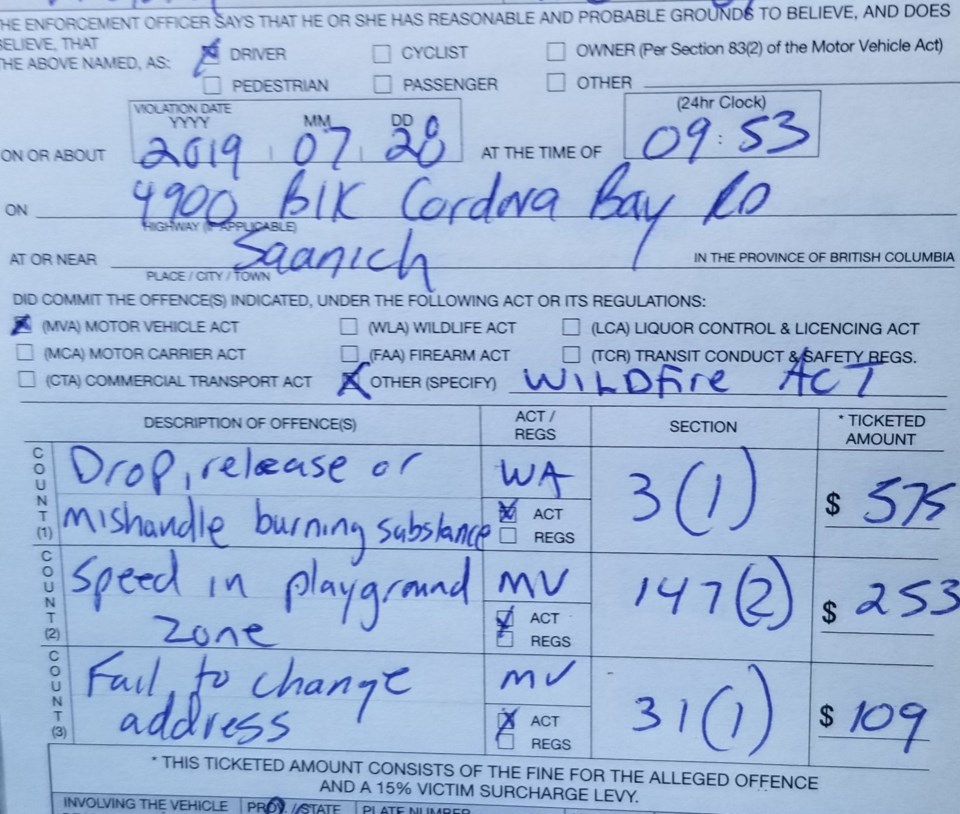 HE ENFORCEMENT OFFICER SAYS THAT HE OR SHE HAS REASONABLE AND PROBABLE GROUNDS TO BELIEVE, AND DOES
BELIEVE, THAT
HE ABOVE NAMED, AS: DRIVER CYCLIST OWNER (Per Section 83(2) of the Motor Vehicle Act)
PEDESTRIAN PASSENGER OTHER
VIOLATION DATE (24hr Clock)
YYYY MM DD
ON OR ABOUT 2019 07 28 AT THE TIME OF 09:53
ON 4900 BlK Cordova Bay RD
HIGHWAY (IF APPLICABLE)
AT OR NEAR Saanich IN THE PROVINCE OF BRITISH COLUMBIA
PLACE / CITY / TOWN
DID COMMIT THE OFFENCE(S) INDICATED, UNDER THE FOLLOWING ACT OR ITS REGULATIONS:
(MVA) MOTOR VEHICLE ACT (WLA) WILDLIFE ACT (LCA) LIQUOR CONTROL & LICENCING ACT
(MCA) MOTOR CARRIER ACT (FAA) FIREARM ACT (TCR) TRANSIT CONDUCT & SAFETY REGS.
(CTA) COMMERCIAL TRANSPORT ACT OTHER (SPECIFY) WILDFire ACT
DESCRIPTION OF OFFENCE(S) ACT / REGS SECTION * TICKETED AMOUNT
COUNT (1) Drop, release or WA 3(1) $ 575
mishandle burning substance ACT
REGS
COUNT (2) Speed in playground MV 147(2) $ 253
zone ACT
REGS
COUNT (3) Fail to change MV 31(1) $ 109
address ACT
REGS
* THIS TICKETED AMOUNT CONSISTS OF THE FINE FOR THE ALLEGED OFFENCE
AND A 15% VICTIM SURCHARGE LEVY.
INVOLVING THE VEHICLE PROV / STATE PLATE NUMBER